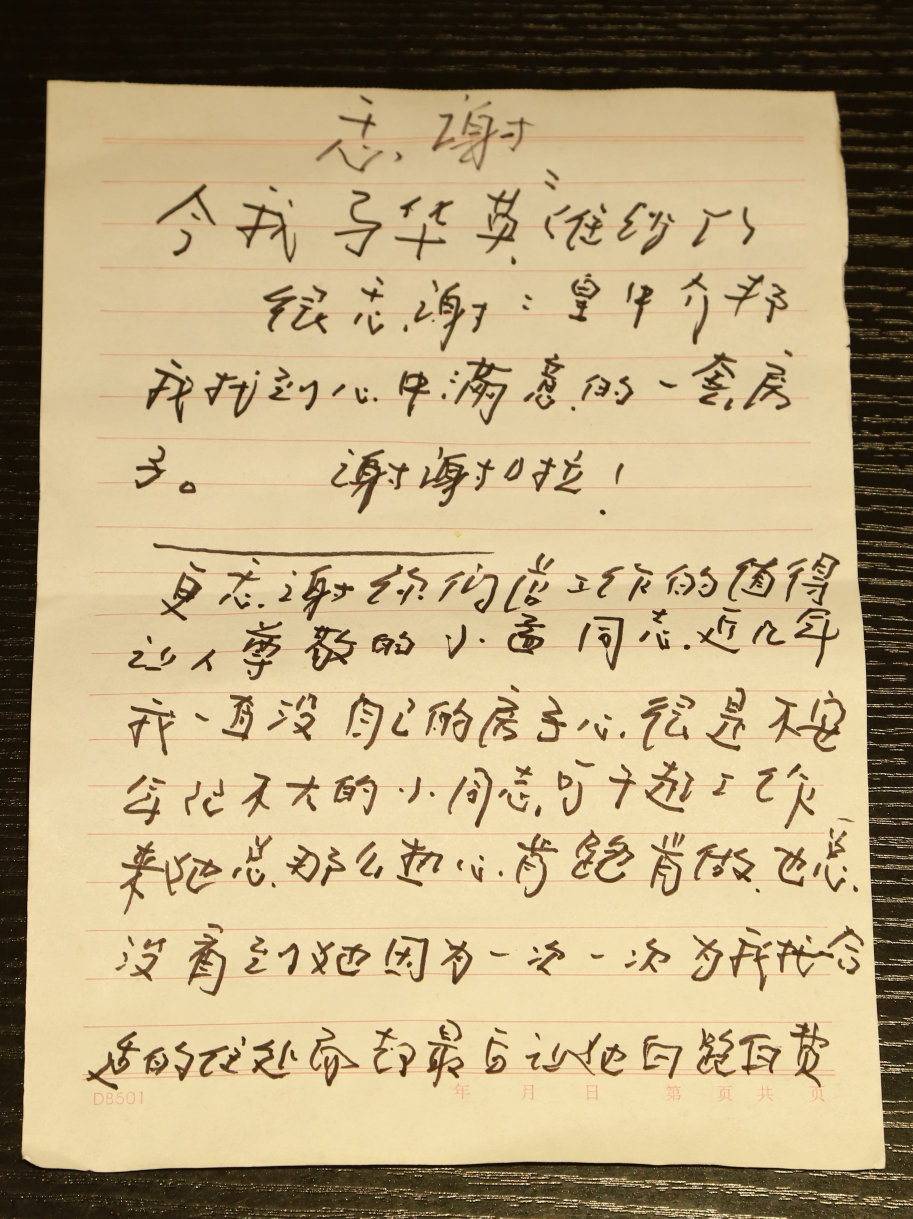 志谢
今我马华英
很志谢：皇中介帮
我找到心中满意的一套房
子。 谢谢啦！
更志谢你们店工作的值得
让人尊敬的小孟同志.近几年
我一直没自己的房子心很是不安
年纪不大的小同志,可干起工作
来她总那么热心.肯跑肯做.也总
没看到她因为一次一次为我找合
适的住处而却最后让她白跑白费
DB501 年 月 日 第 页 共 页